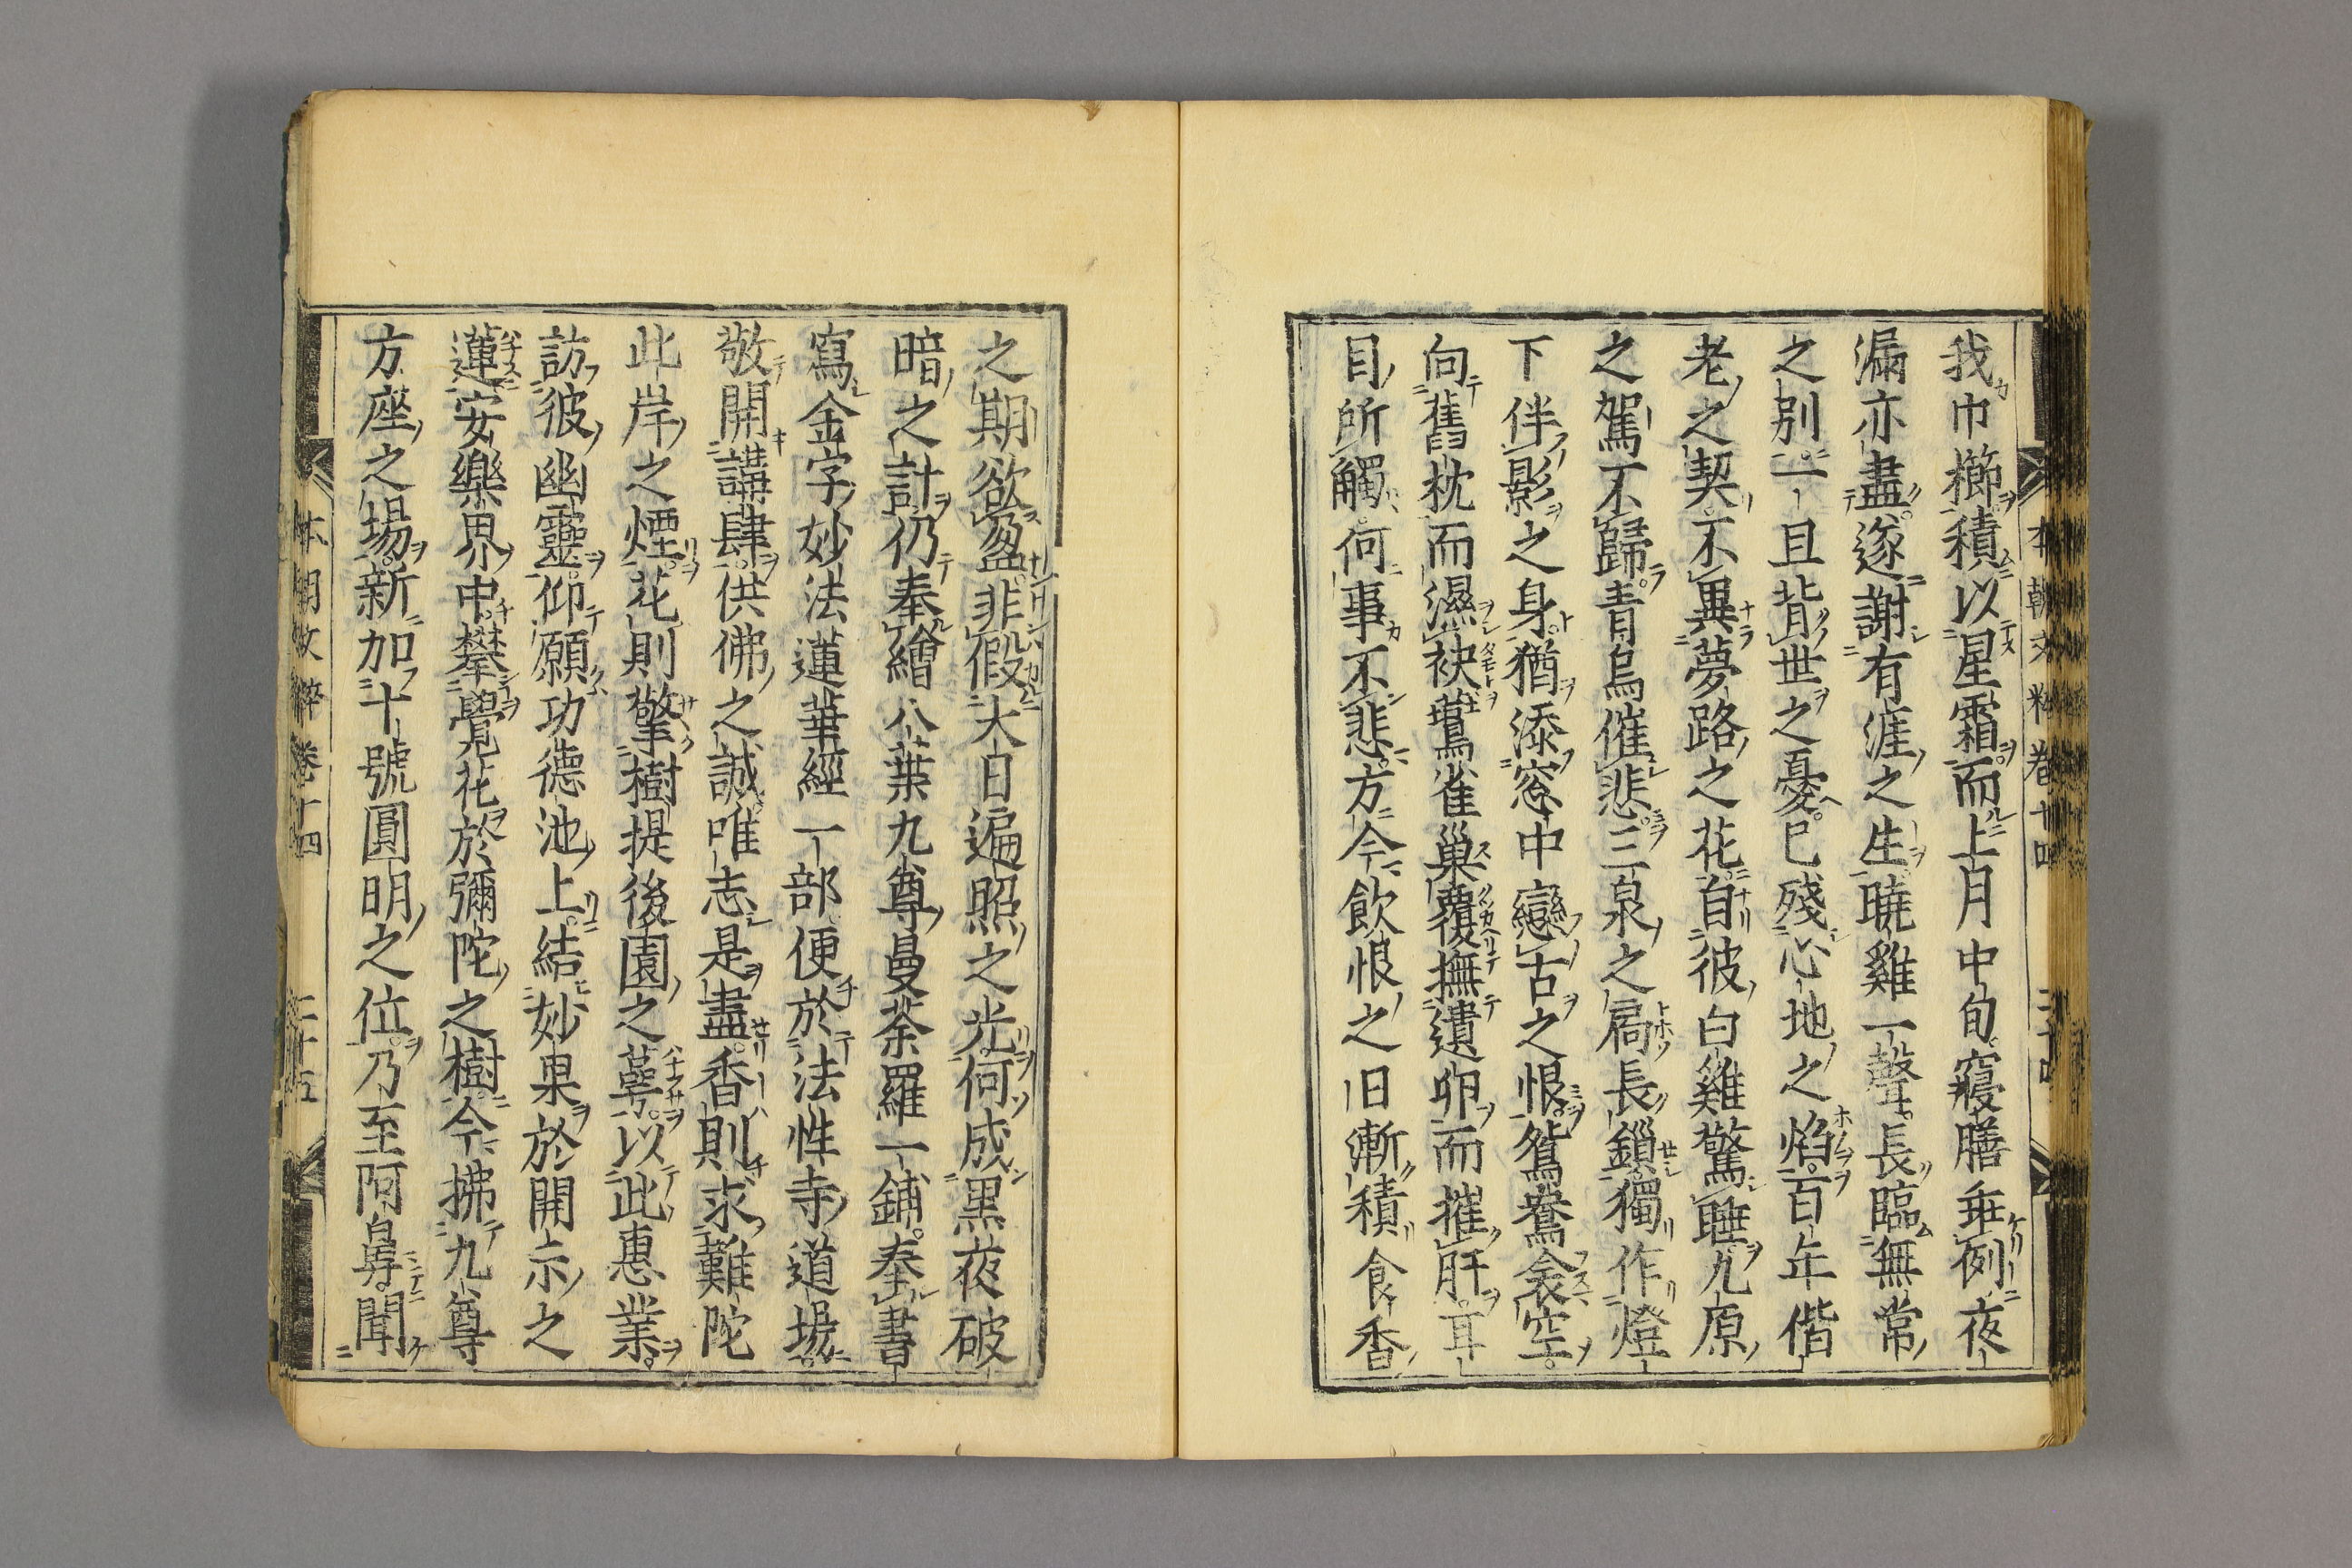 本朝文粹卷十四
我巾櫛積以星霜而上月中旬寢膳乖例夜
漏亦盡遂謝有涯之生曉雞一聲長臨無常
之別一旦背世之憂已殘心地之焰百年偕
老之契不異夢路之花自彼白雞驚睡九原
之駕不歸青烏催悲三泉之扃長鏁獨作燈
下伴影之身猶添窓中戀古之恨鴛鴦衾空
向舊枕而濕袂鷰雀巢覆撫遺卵而摧肝耳
目所觸何事不悲方今飲恨之旧漸積食香
之期欲盈非假大日遍照之光何成黑夜破
暗之計仍奉繪八葉九尊曼荼羅一鋪奉書
寫金字妙法蓮華經一部便於法性寺道場
敬開講肆供佛之誠唯志是盡香則求難陀
此岸之煙花則擎樹提後園之蕚以此惠業
訪彼幽靈仰願功德池上結妙果於開示之
蓮安樂界中攀覺花於彌陀之樹今拂九尊
方座之場新加十號圓明之位乃至阿鼻聞
本朝文粹卷十四 三十五